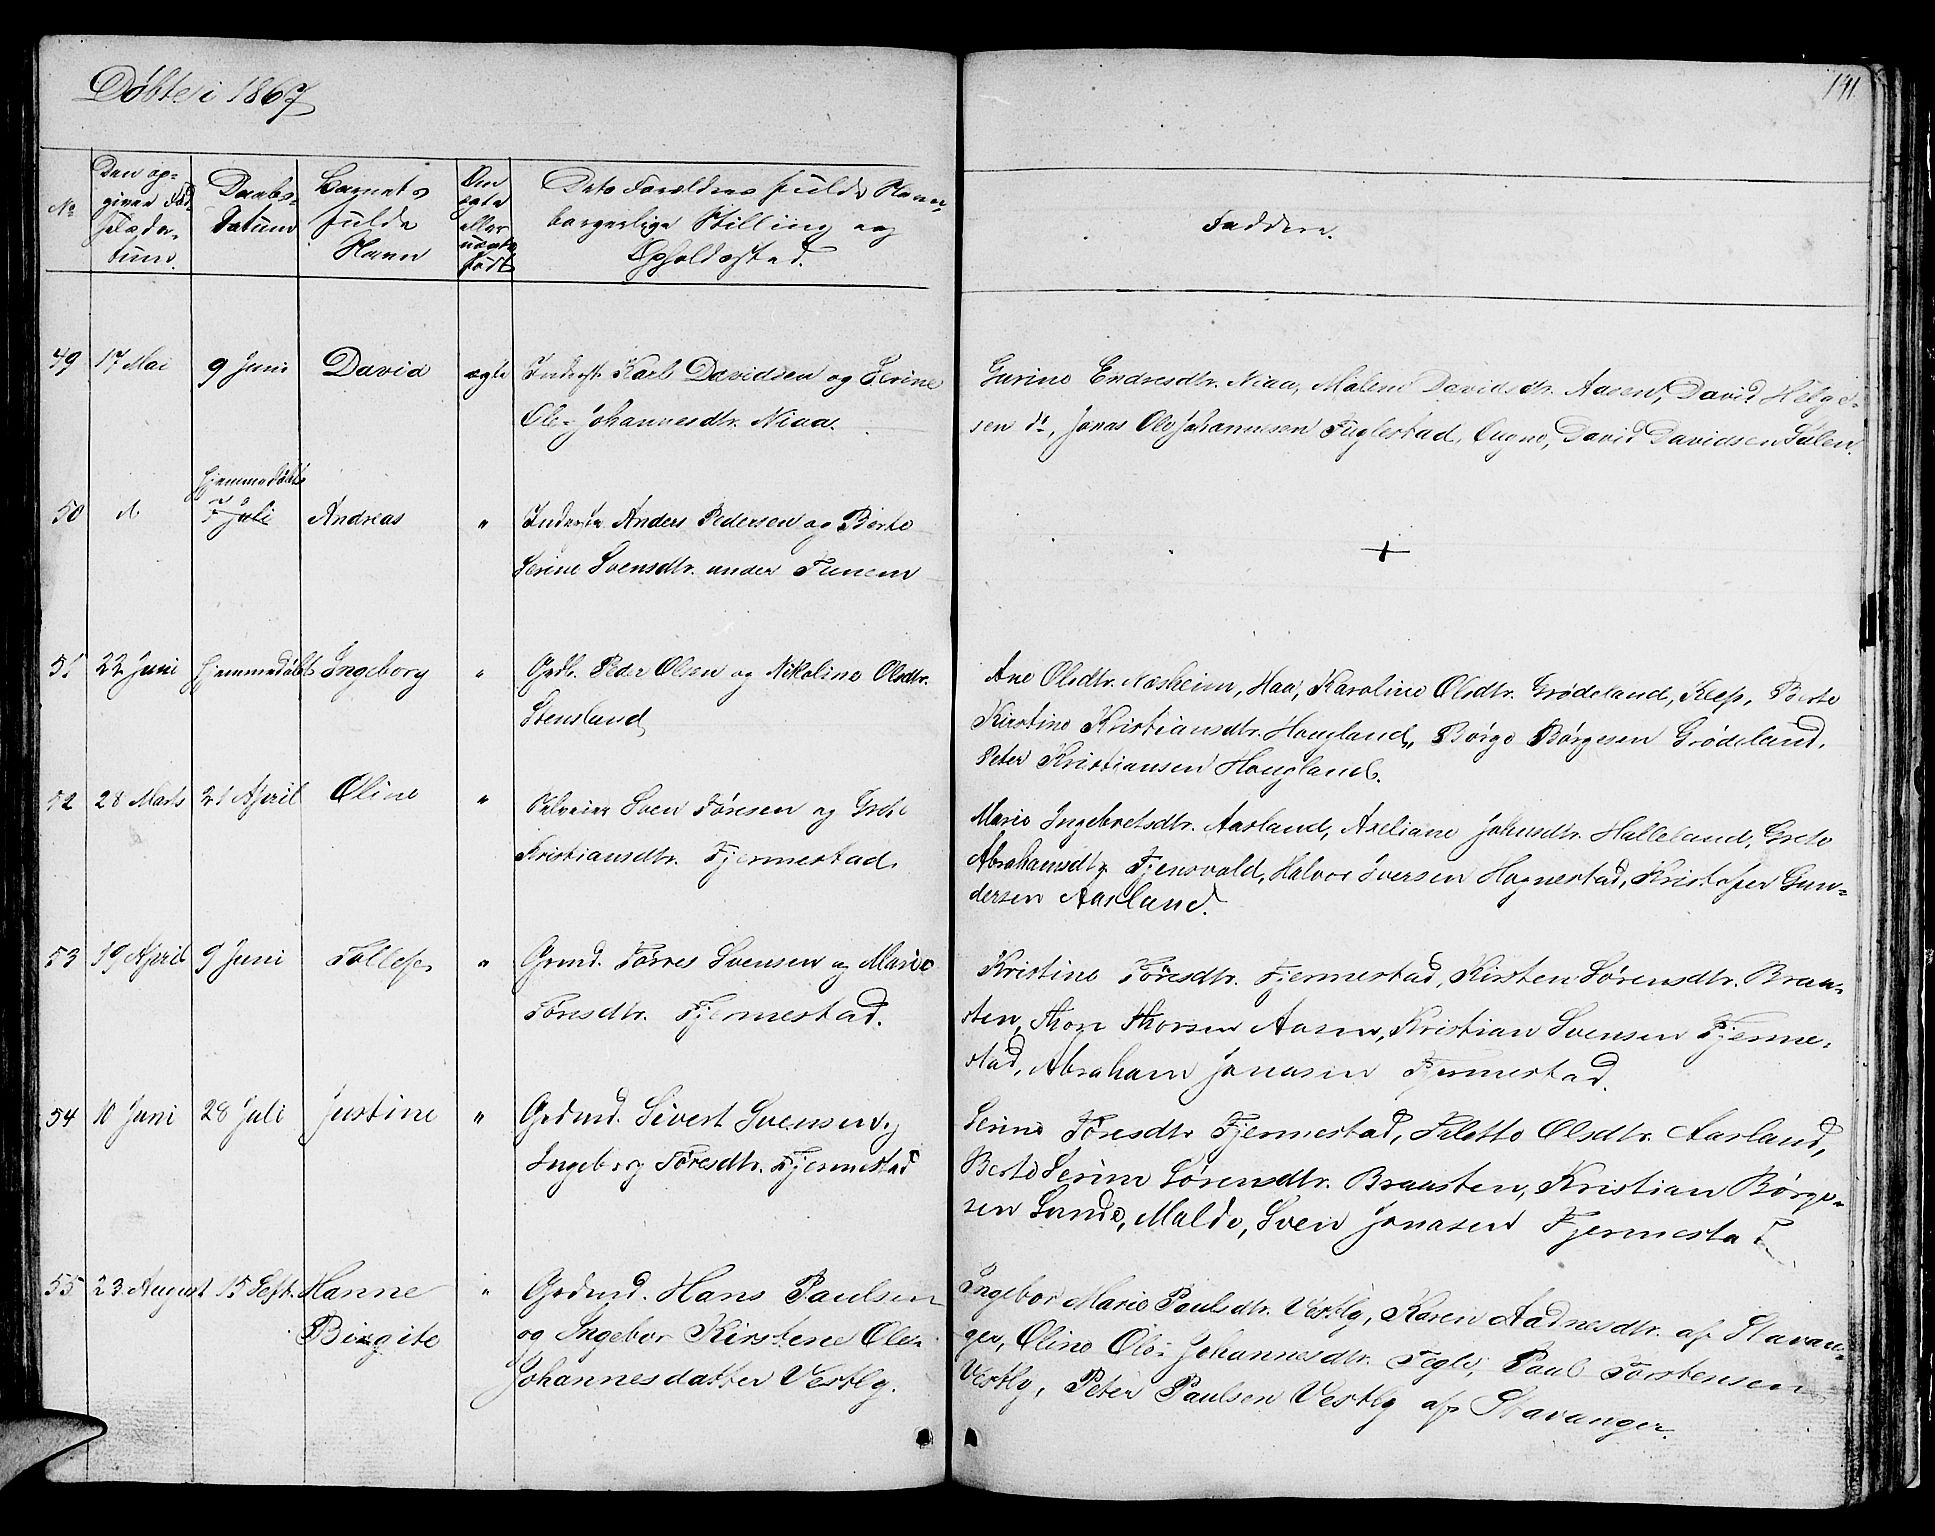 Døbte i 1867
141
No
Den op-
given Fød-
selsda-
tum.
Daabs-
Datum
Barnets
fulde
Navn
Om
ægte
eller
uægte
født
Dets Forældres fulde Navn,
borgerlige Stilling og
Opholdssted.
Faddere.
49 17 Mai 9 Juni David ægte Inderst Karl Davidsen og Serine
Ole-Johannesdtr. Niaa.
Gurine Endresdtr. Niaa, Malene Davidsdtr. Aasen, David Helge-
sen do, Jonas Ole Johannesen Fuglestad, Ougne, David Davidsen Salen.
Hjemmedøbt
50 7 Juli Andreas " Inderste Anders Pedersen og Berte
Serine Svensdtr. under Tunem
+
51 22 Juni Hjemmedøbt Ingeborg " Grdb. Peder Olsen og Nikoline Olsdtr.
Stensland
Ane Olsdtr. Næsheim, Haa, Karoline Olsdtr. Grødeland, Klep, Berte
Kirstine Kristiansdtr. Hougland, Børge Børgesen Grødeland,
Peter Kristiansen Hougland.
52 28 Marts 21 April Oline " Selveier Sven Tøresen og Grete
Kristiansdtr. Fjermestad.
Marie Ingebretsdtr. Aasland, Axeliane Johnsdtr. Halleland, Grete
Abrahamsdtr Tjensvold, Halvor Iversen Hognestad, Kristofer Gun-
dersen Aasland.
53 19 April 9 Juni Tollef " Grmd. Tørres Svensen og Marie
Tøresdtr. Fjermestad.
Kristine Tøresdtr. Fjermestad, Kirsten Sørensdtr. Braa-
sten, Thor Thorsen Aasen, Kristian Svensen Fjerme-
stad, Abraham Jonasen Fjermestad.
54 10 Juni 28 Juli Justine " Grdmd. Sivert Svensen og
Ingeborg Tøresdtr. Fjermestad
Serine Tøresdtr Fjermestad, Olsdtr. Aasland,
Berte Serine Sørensdtr. Braasten, Kristian Børge-
sen Lunde, Malde, Sven Jonasen Fjermestad
55 23 August 15 Sept. Hanne " Grdmd. Hans Paulsen
Birgite og Ingebor Kirstene Ole-
Johannesdatter Vestly.
Ingebor Marie Paulsdtr. Vestly, Karen Aadnesdtr. af Stavan-
ger, Oline Ole-Johannesdtr. Tegle, Paul Torstensen
Vestly, Peter Paulsen Vestly af Stavanger.